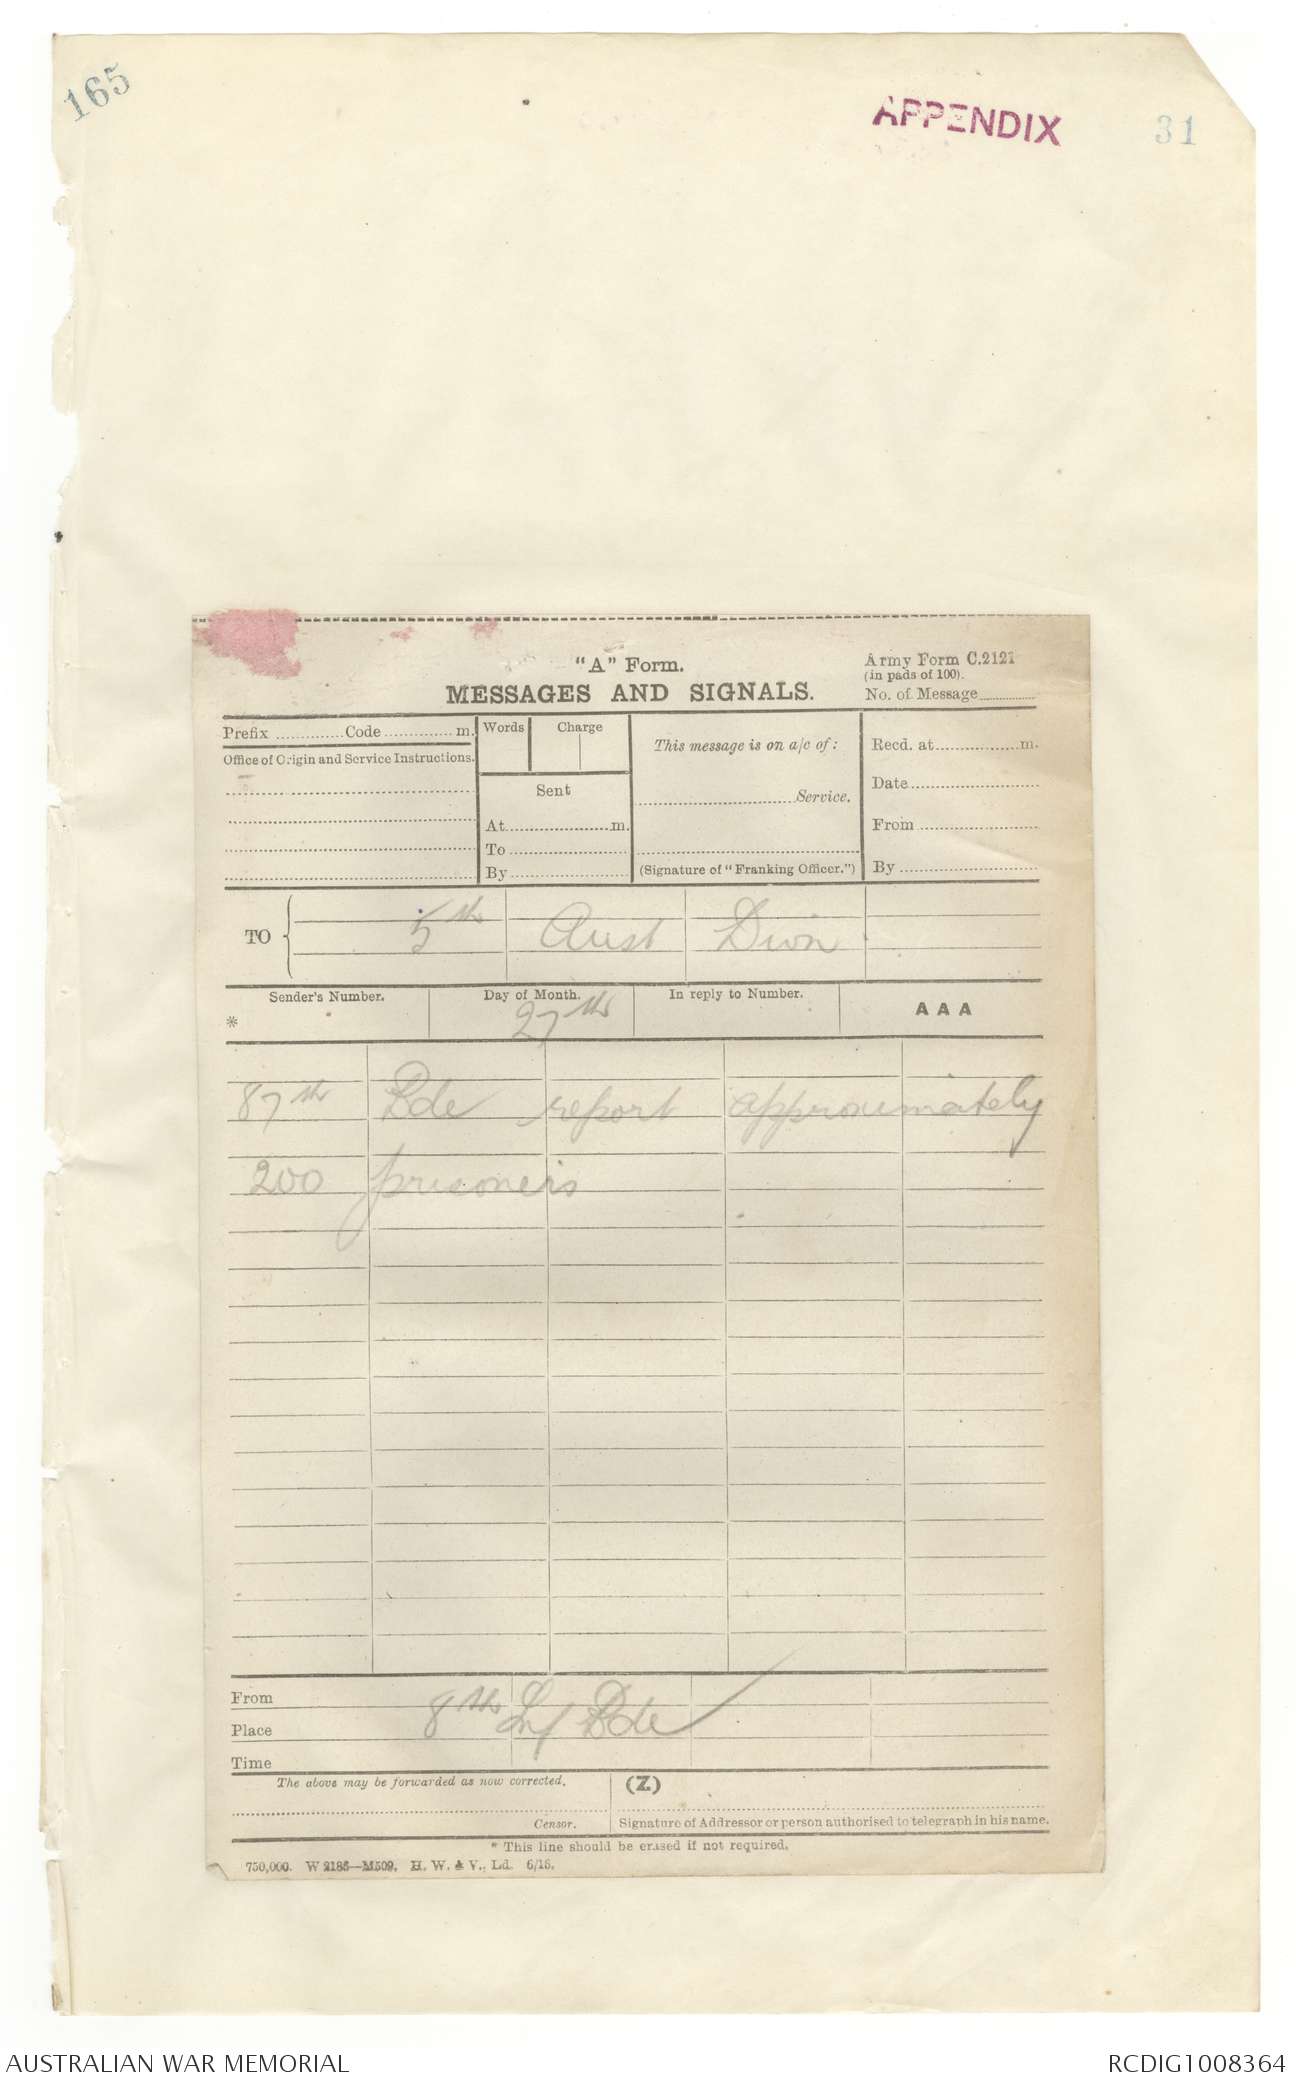 165
APPENDIX 31
"A" Form.
Army Form C.2121
(in pads of 100).
MESSAGES AND SIGNALS.
No. of Message
Prefix Code m.
Words Charge
This message is on a/c of:
Recd. at m.
Office of Origin and Service Instructions.
Sent
Service.
Date
At m.
From
To
By
(Signature of "Franking Officer.")
By
TO 5th Aust Divn
Sender's Number. Day of Month. In reply to Number. AAA
* 27th
87th Bde report approximately
200 prisoners
From
Place 8th Inf Bde
Time
The above may be forwarded as now corrected. (Z)
Censor. Signature of Addressor or person authorised to telegraph in his name.
* This line should be erased if not required.
750,000. W 2186—M509. H. W. & V., Ld. 6/16.
AUSTRALIAN WAR MEMORIAL RCDIG1008364